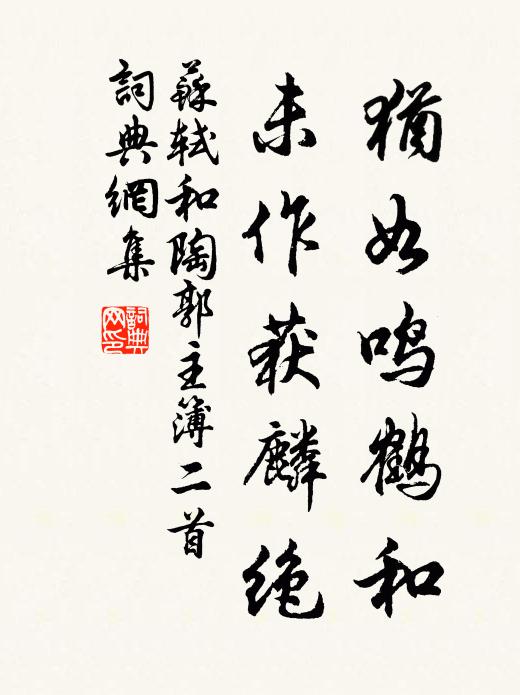 猶如鳴鶴和
未作获麟绝
蘇軾和陶郭主簿二首
詞典網集
詞典网印